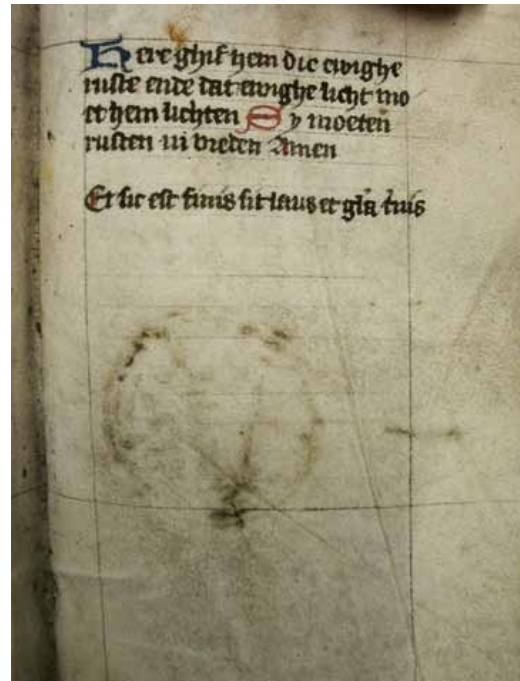 Here ghif hem die ewighe
ruste ende dat ewighe licht mo
et hem lichten Sy moeten
rusten in vreden Amen
Et sic est finis sit laus et gla tuis